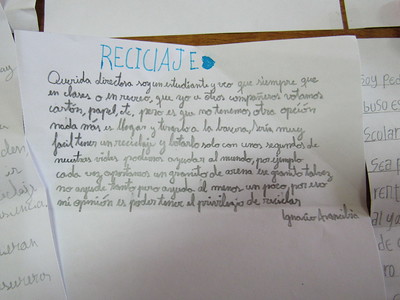 RECICLAJE
Querida directora soy un estudiante y veo que siempre que
en clases o en recreo, que yo u otros compañeros botamos
cartón, papel, etc, pero es que no tenemos otra opción
nada mas es llegar y tirarlo a la basura, sería muy
facil tener un reciclaje y botarlo solo con unos segundos de
nuestras vidas podemos ayudar al mundo, por ejemplo
cada vez aportamos un granito de arena ese granito talvez
no ayude tanto pero ayuda al menos un poco, por eso
mi opinión es poder tener el privilegio de reciclar
Ignacio
Soy ped
buso es
scolar
sea p
rent
al ya